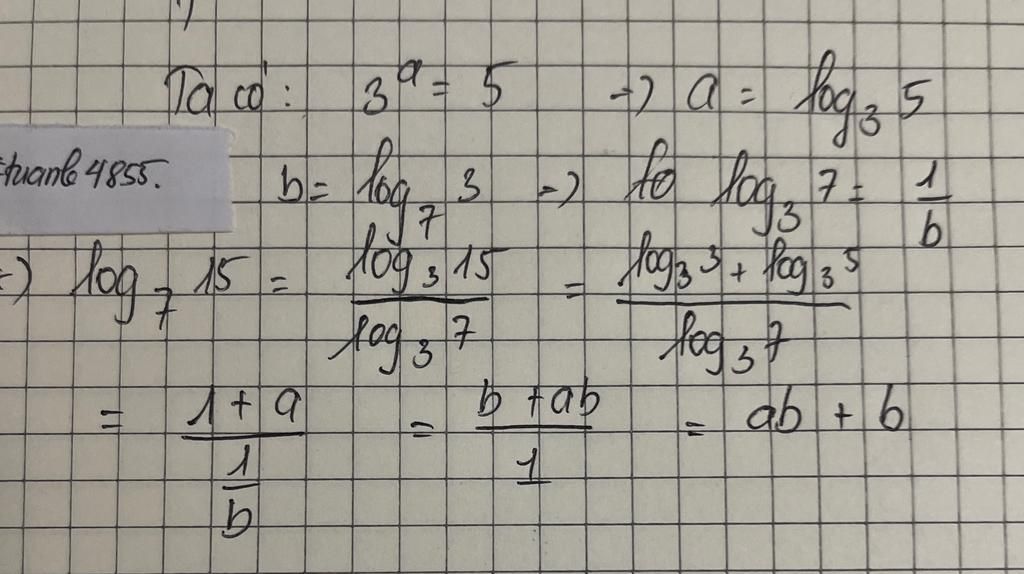 Ta có: 3^a = 5 => a = log_3 5
tuanle4855.
b = log_7 3 => log_3 7 = 1/b
=> log_7 15 = (log_3 15)/(log_3 7) = (log_3 3 + log_3 5)/(log_3 7)
= (1 + a)/(1/b) = (b + ab)/1 = ab + b